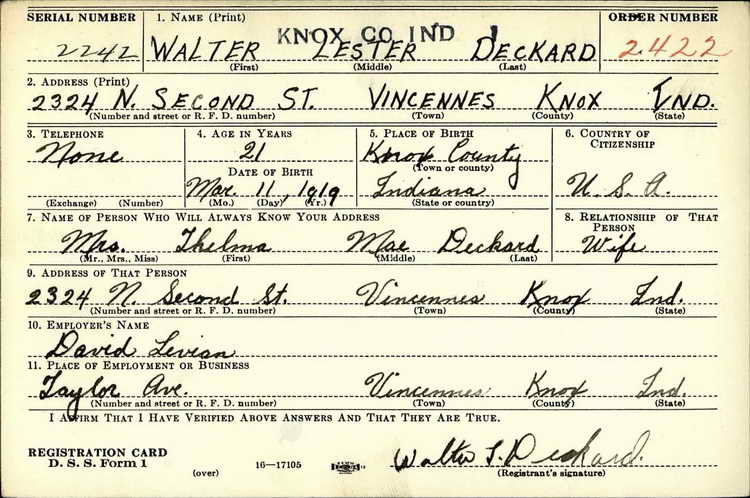 SERIAL NUMBER 1. NAME (Print) KNOX CO IND 1 ORDER NUMBER
2242 WALTER LESTER DECKARD 2422
(First) (Middle) (Last)
2. ADDRESS (Print)
2324 N. SECOND ST. VINCENNES KNOX IND.
(Number and street or R. F. D. number) (Town) (County) (State)
3. TELEPHONE 4. AGE IN YEARS 5. PLACE OF BIRTH 6. COUNTRY OF CITIZENSHIP
None 21 Knox County
(Town or county)
DATE OF BIRTH
Mar. 11, 1919 Indiana U. S. A.
(Exchange) (Number) (Mo.) (Day) (Yr.) (State or country)
7. NAME OF PERSON WHO WILL ALWAYS KNOW YOUR ADDRESS 8. RELATIONSHIP OF THAT PERSON
Mrs. Thelma Mae Deckard Wife
(Mr., Mrs., Miss) (First) (Middle) (Last)
9. ADDRESS OF THAT PERSON
2324 N. Second St. Vincennes Knox Ind.
(Number and street or R. F. D. number) (Town) (County) (State)
10. EMPLOYER'S NAME
David Levian
11. PLACE OF EMPLOYMENT OR BUSINESS
Taylor Ave. Vincennes Knox Ind.
(Number and street or R. F. D. number) (Town) (County) (State)
I AFFIRM THAT I HAVE VERIFIED ABOVE ANSWERS AND THAT THEY ARE TRUE.
REGISTRATION CARD
D. S. S. Form 1 (over) 16—17105 Walter L. Deckard.
(Registrant's signature)